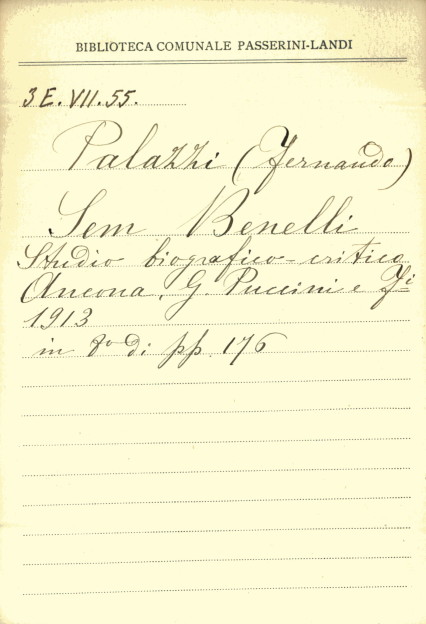 BIBLIOTECA COMUNALE PASSERINI-LANDI
3 E. VII. 55.
Palazzi (Fernando)
Sem Benelli
Studio biografico-critico
Ancona, G. Puccini e Fⁱ
1913
in 8º di pp. 176